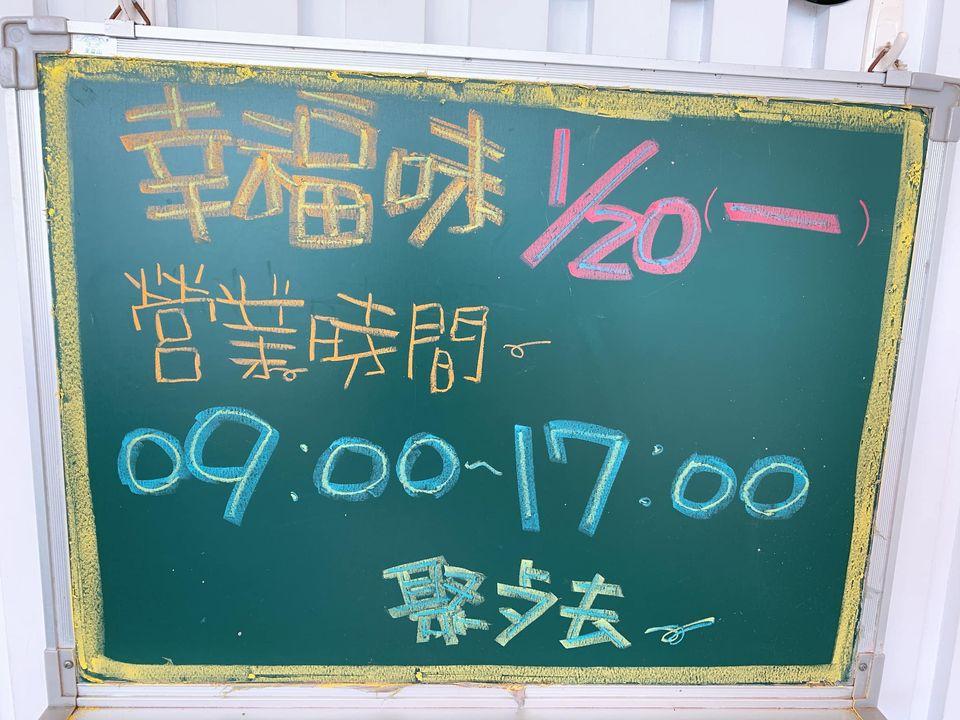 幸福味 1/20(一)
營業時間~
09:00~17:00
聚夕去~